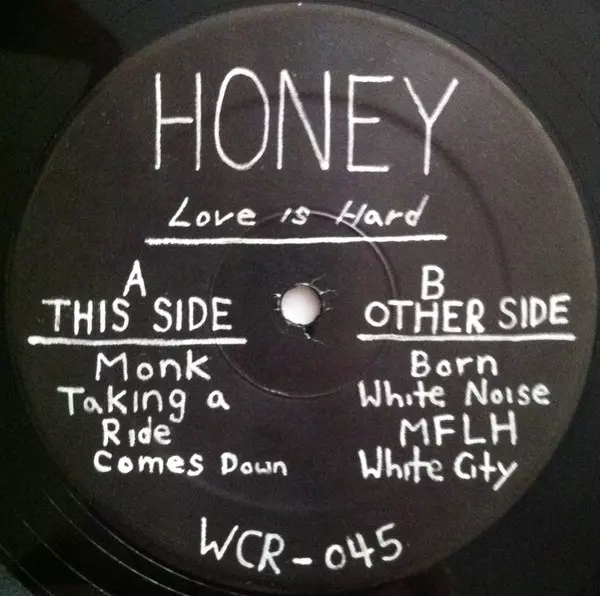 HONEY
Love is Hard
A
THIS SIDE
Monk
Taking a
Ride
Comes Down
B
OTHER SIDE
Born
White Noise
MFLH
White City
WCR-045